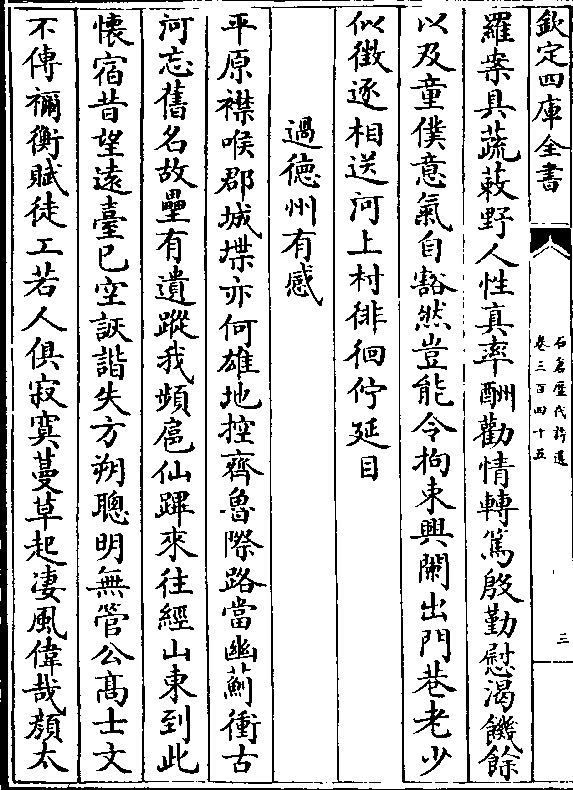 欽定四庫全書
石倉歷代詩選
卷三百四十五
三
羅案具蔬蔌野人性真率酬勸情轉篤殷勤慰渴饑餘
以及童僕意氣自豁然豈能令拘束興闌出門巷老少
似徵逐相送河上村徘徊佇延目
過德州有感
平原襟喉郡城堞亦何雄地控齊魯際路當幽薊衝古
河忘舊名故壘有遺蹤我頻扈仙蹕來往經山東到此
懷宿昔望遠臺已空詼諧失方朔聰明無管公高士文
不傳禰衡賦徒工若人俱寂寞蔓草起淒風偉哉顏太